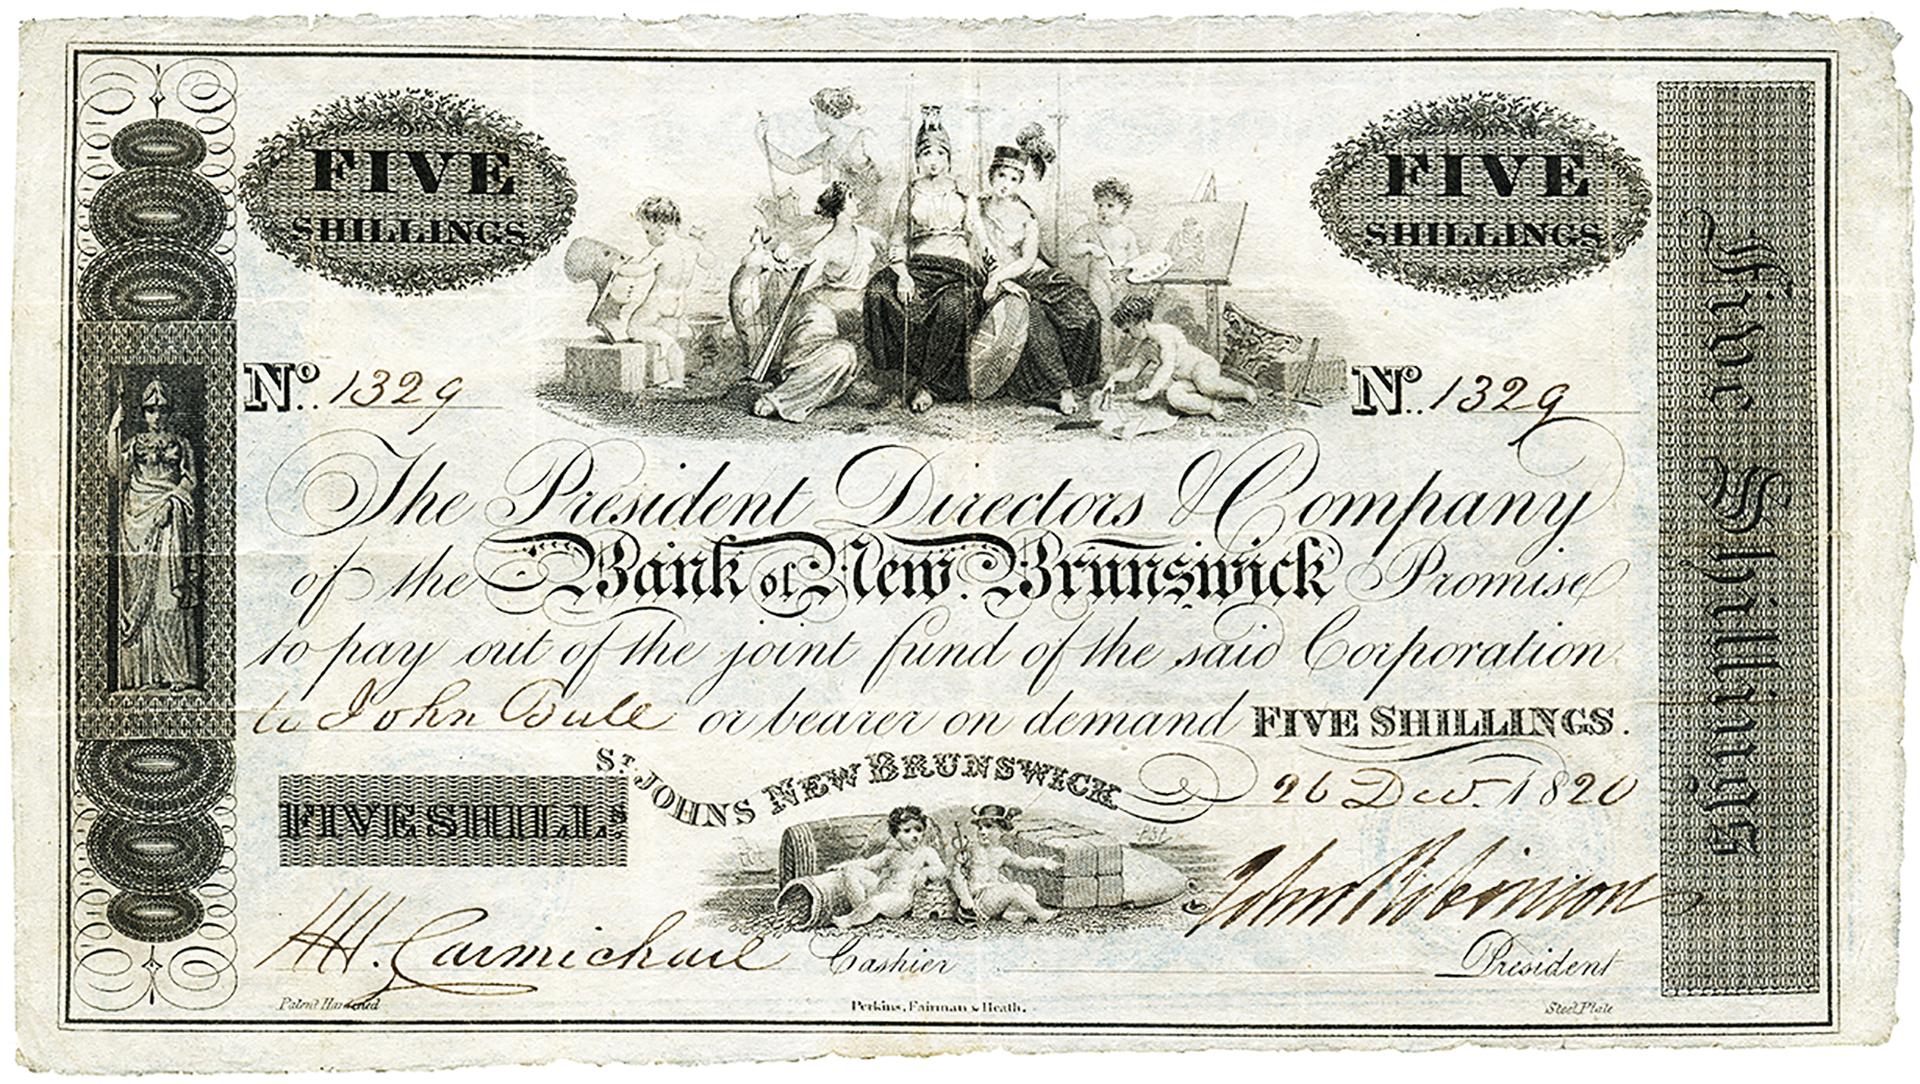 FIVE
SHILLINGS
FIVE
SHILLINGS
No. 1329
No. 1329
The President Directors & Company
of the Bank of New Brunswick Promise
to pay out of the joint fund of the said Corporation
to John Bull or bearer on demand FIVE SHILLINGS.
ST. JOHNS NEW BRUNSWICK 26 Dec. 1820
FIVE SHILLS
H H. Carmichael Cashier
John Robinson President
Patent Hardened
Perkins, Fairman & Heath.
Steel Plate
Five Shillings